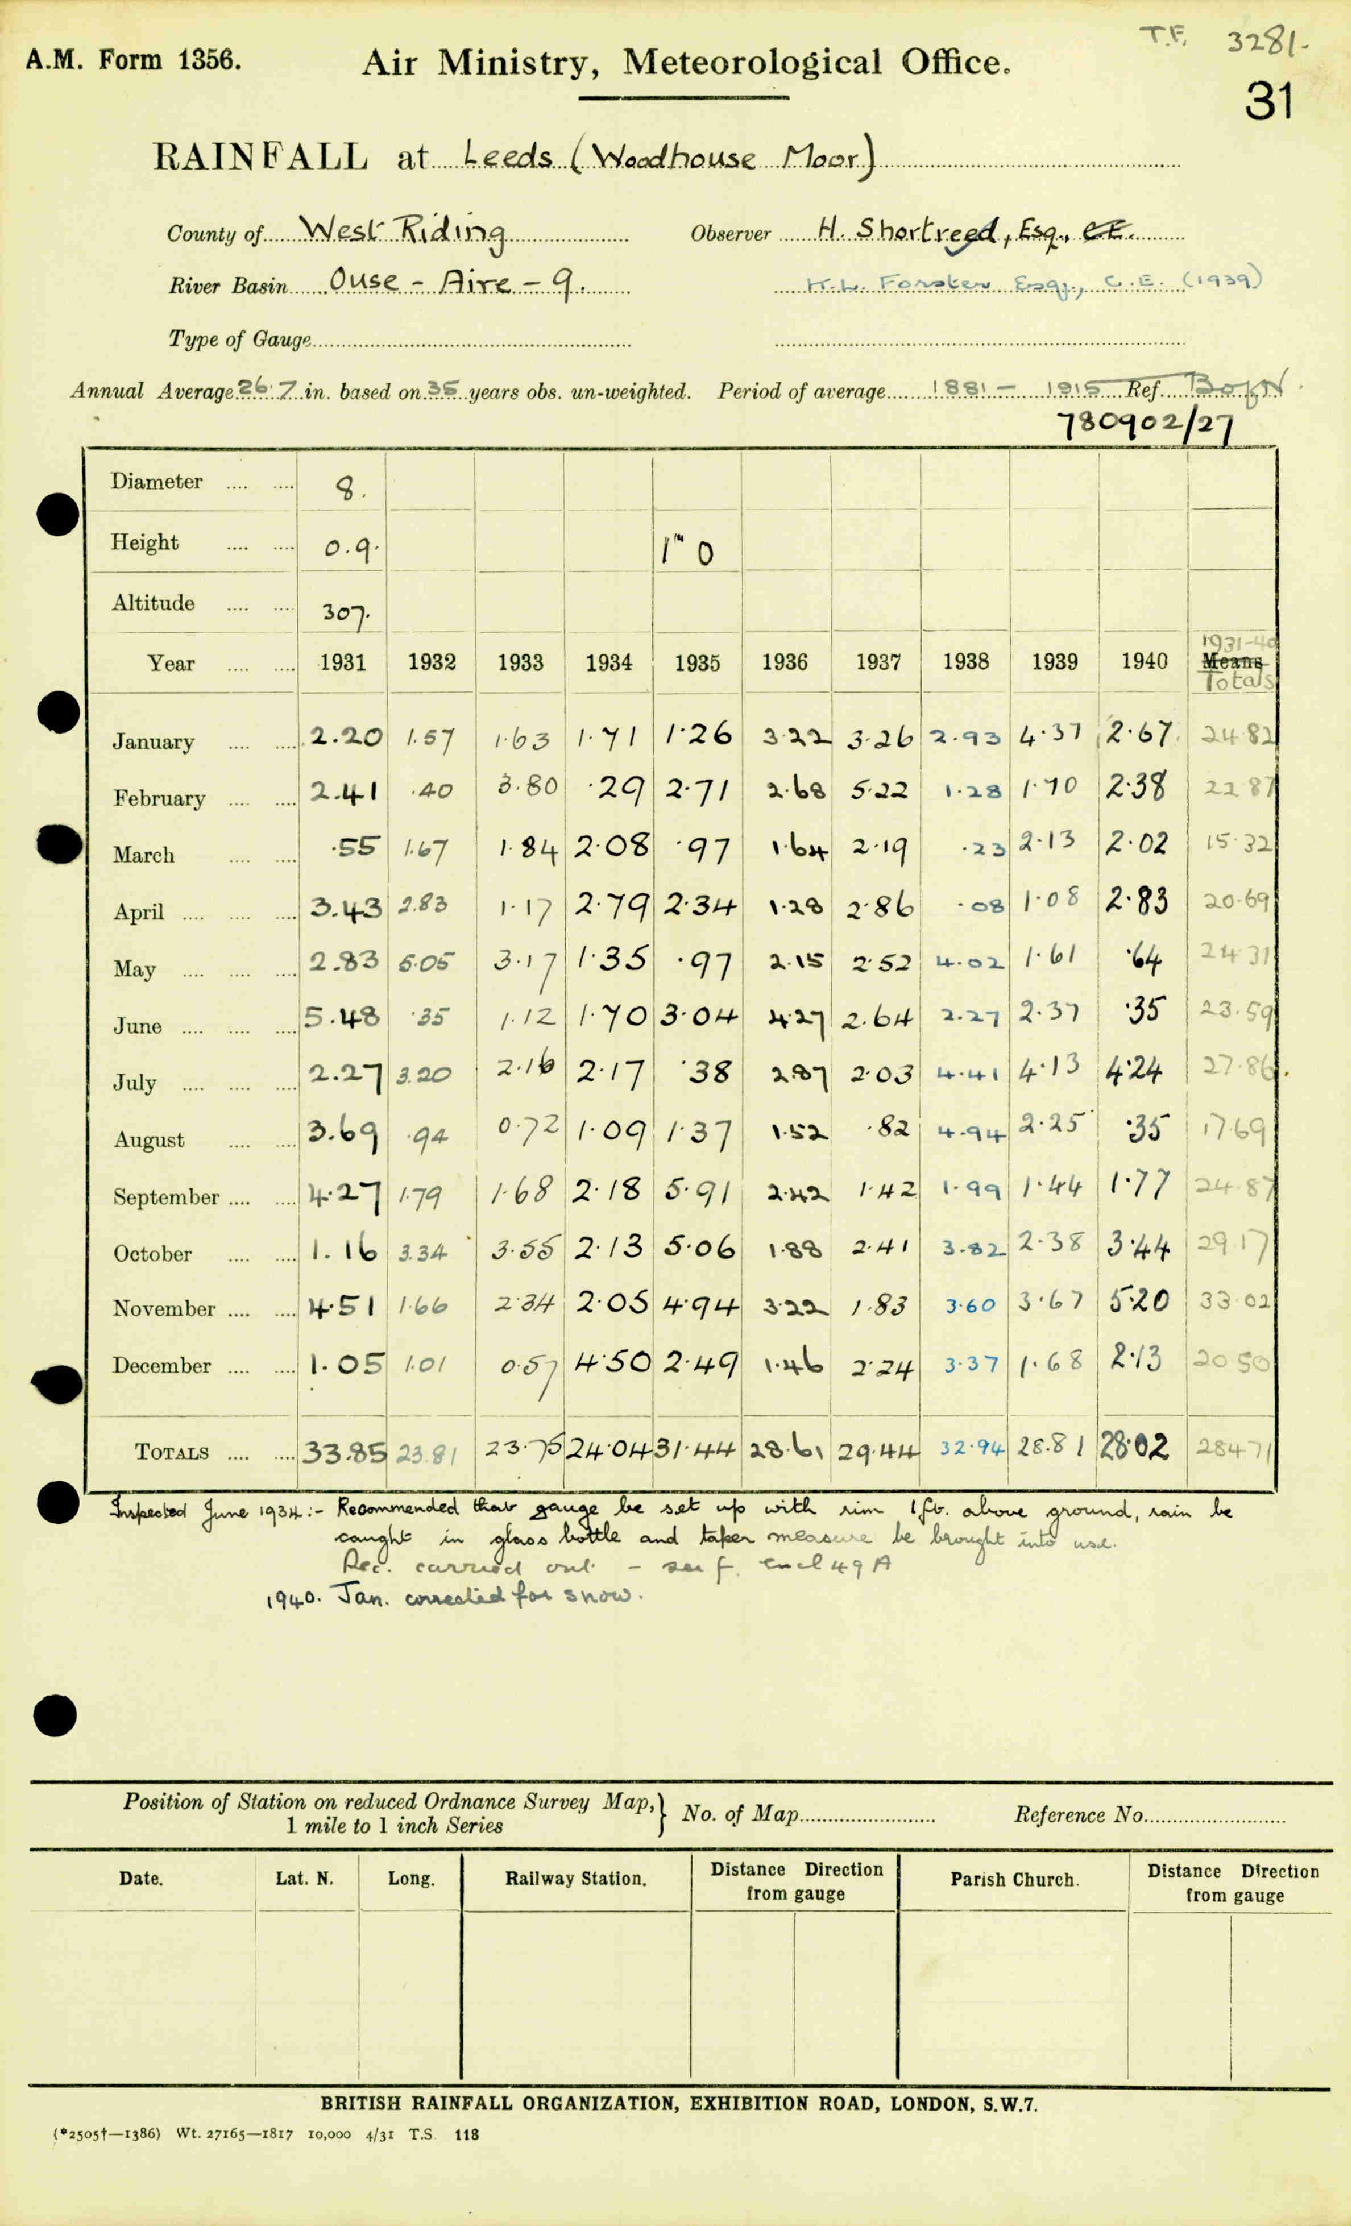 T.F. 3281.
A.M. Form 1356. Air Ministry, Meteorological Office.
31
RAINFALL at Leeds (Woodhouse Moor)
County of West Riding Observer H. Shortreed, Esq., C.E.
River Basin Ouse - Aire - 9. H.L. Forster Esq., C.E. (1939)
Type of Gauge
Annual Average 26.7 in. based on 35 years obs. un-weighted. Period of average 1881 - 1915 Ref.
780902/27
Diameter 8.
Height 0.9. 1" 0
Altitude 307.
1931-40
Year 1931 1932 1933 1934 1935 1936 1937 1938 1939 1940 Means
Totals
January 2.20 1.57 1.63 1.71 1.26 3.22 3.26 2.93 4.37 2.67 24.82
February 2.41 .40 3.80 .29 2.71 2.68 5.22 1.28 1.70 2.38 22.87
March .55 1.67 1.84 2.08 .97 1.64 2.19 .23 2.13 2.02 15.32
April 3.43 2.83 1.17 2.79 2.34 1.28 2.86 .08 1.08 2.83 20.69
May 2.83 5.05 3.17 1.35 .97 2.15 2.52 4.02 1.61 .64 24.31
June 5.48 .35 1.12 1.70 3.04 4.27 2.64 2.27 2.37 .35 23.59
July 2.27 3.20 2.16 2.17 .38 2.87 2.03 4.41 4.13 4.24 27.86
August 3.69 .94 0.72 1.09 1.37 1.52 .82 4.94 2.25 .35 17.69
September 4.27 1.79 1.68 2.18 5.91 2.42 1.42 1.99 1.44 1.77 24.87
October 1.16 3.34 3.55 2.13 5.06 1.88 2.41 3.82 2.38 3.44 29.17
November 4.51 1.66 2.34 2.05 4.94 3.22 1.83 3.60 3.67 5.20 33.02
December 1.05 1.01 0.57 4.50 2.49 1.46 2.24 3.37 1.68 2.13 20.50
TOTALS 33.85 23.81 23.75 24.04 31.44 28.61 29.44 32.94 28.81 28.02 284.71
Inspected June 1934:- Recommended that gauge be set up with rim 1ft. above ground, rain be
caught in glass bottle and taper measure be brought into use.
Rec. carried out - see f. encl 49A
1940. Jan. corrected for snow.
Position of Station on reduced Ordnance Survey Map, } No. of Map Reference No.
1 mile to 1 inch Series
Date. Lat. N. Long. Railway Station. Distance Direction from gauge Parish Church. Distance Direction from gauge
BRITISH RAINFALL ORGANIZATION, EXHIBITION ROAD, LONDON, S.W.7.
(*2505†—1386) Wt. 27165—1817 10,000 4/31 T.S. 118